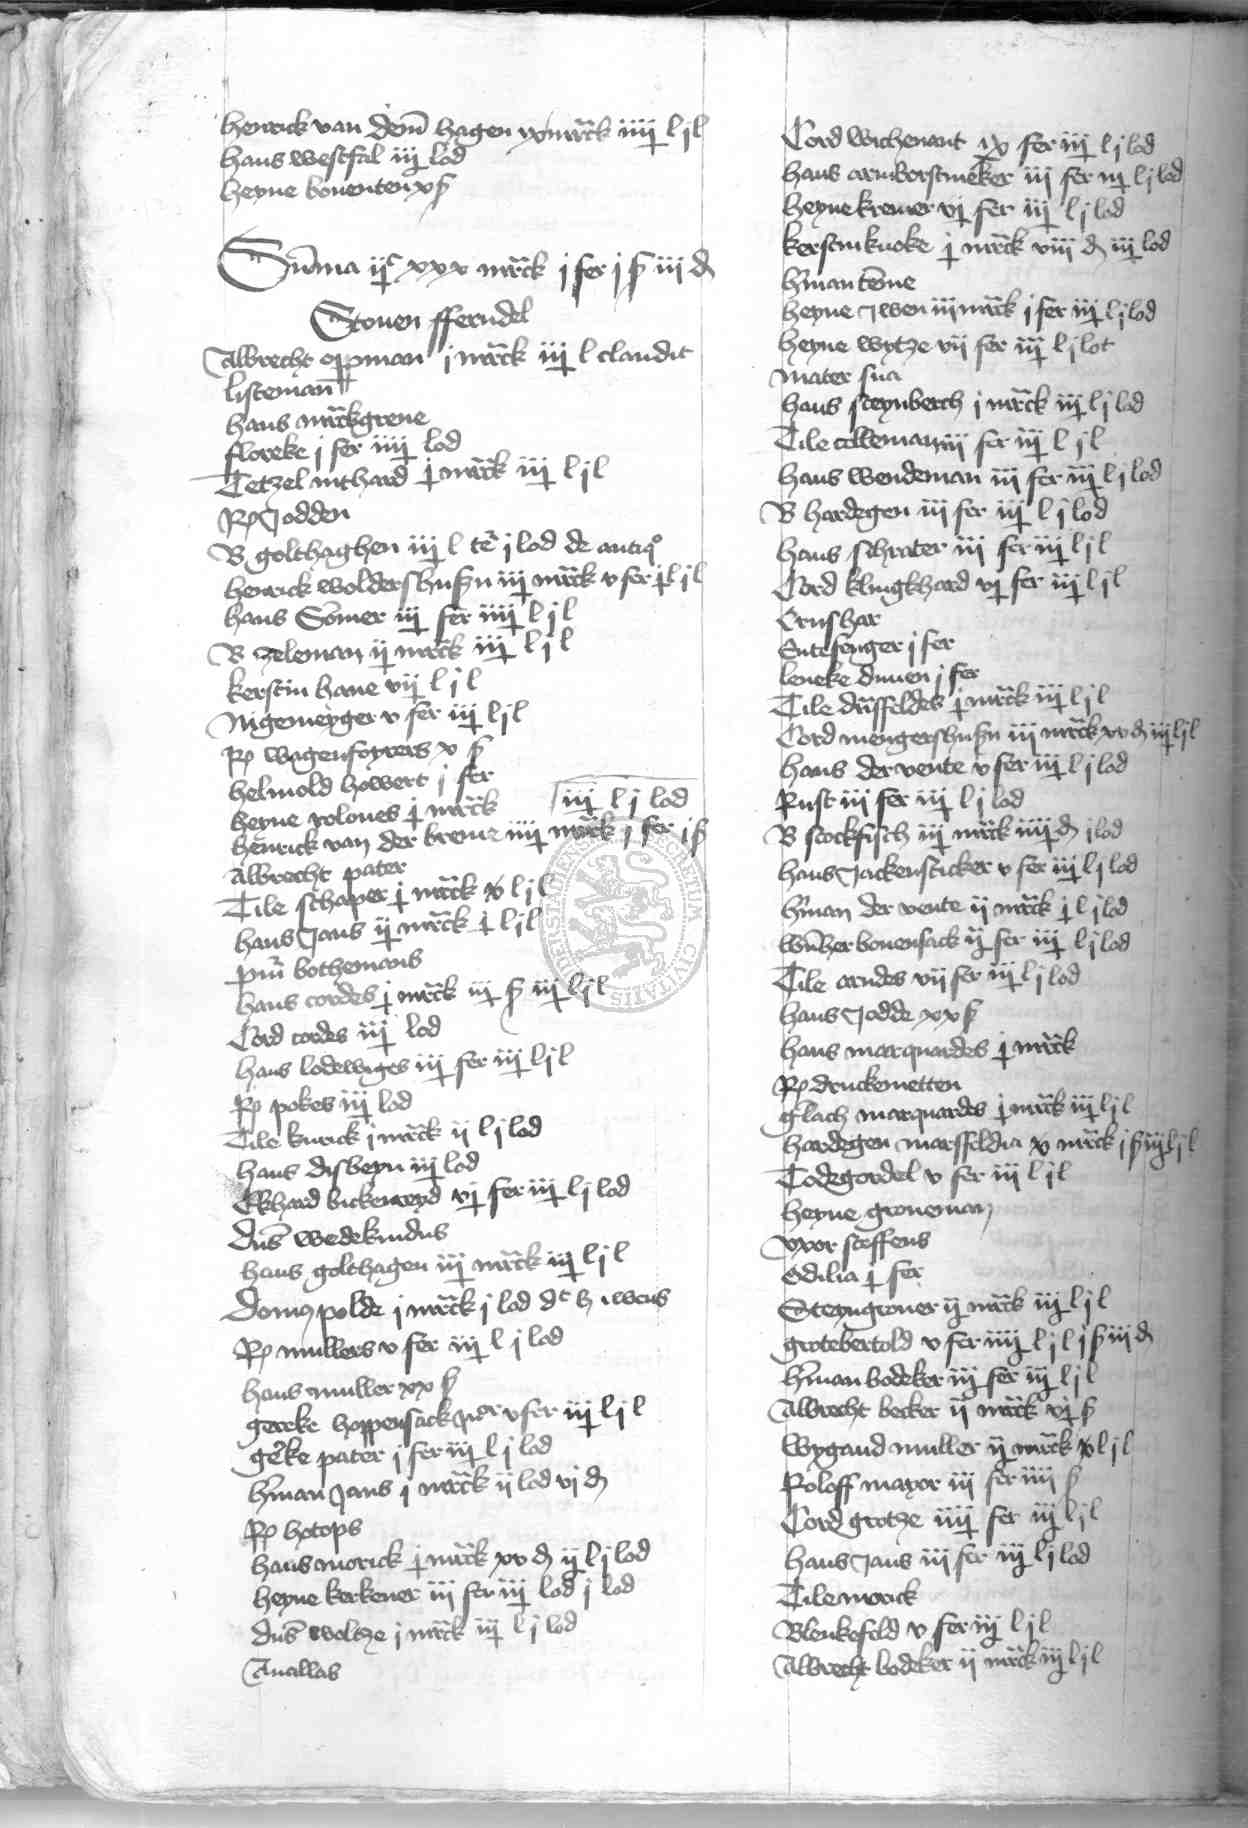 henrick van dem hagen x marck iiij l j l
hans westfal iij lod
heyne bouenten x ß
Summa ij c xxx marck j fer j ß iij d
Stouen fferndel
Albrecht opman j marck iij l claudit
listeman
hans marckgreue
floreke j fer iiij lod
Tetzel nithard j marck iij l j l
Rp Jodden
B golthaghen iij l te j lod de antiqo
henrick woldershusen iij marck v fer j l j l
hans Somer iij fer iiij l j l
B zeleman ij marck iij l j l
kerstin hane vij l j l
Nigemeyger v fer iij l j l
Rp wagenforers x ß
helmold howert j fer
heyne rolones j marck iij l j lod
henrick van der breme iiij marck j fer j ß
Albrecht pater
Tile schaper j marck x l j l
hans Jans ij marck j l j l
bothemans
hans cordes j marck iij ß iij l j l
Cord cordes iij lod
hans lodewiges iij fer iij l j l
Rp pokes iij lod
Tile kurick j marck ij l j lod
hans disbeyn iij lod
Ekhard bickenreyd vj fer iij l j lod
dns wedekindus
hans golthagen iij marck iij l j l
domus polde j marck j lod de h iwens
Rp mullers v fer iij l j lod
hans muller xx ß
gereke hoppensack v fer iij l j l
gerke pater j fer iij l j lod
hman Jans j marck ij lod vj d
Rp hotops
hans morick j marck xv d ij l j lod
heyne kerkener iij fer iij lod j lod
dns woltze j marck iij l j lod
Anallas
Cord wichenant ix fer iij l j lod
hans armborstmeker iij fer iij l j lod
heyne kremer vj fer iij l j lod
kerstin kucke j marck viij d iij lod
hman teme
heyne Jwen iij marck j fer iij l j lod
heyne wytze vij fer iij l j lot
mater sua
hans steynberch j marck iij l j lod
Tile tilleman iij fer iij l j l
hans wendeman iij fer iij l j lod
B hardegen iij fer iij l j lod
hans schrater iij fer iij l j l
Cord klingkhard vj fer iij l j l
Crushar
Sutesenger j fer
leneke duuen j fer
Tile dransfeldes j marck iij l j l
Cord mengershusen iij marck xv d iij l j l
hans der vente v fer iij l j lod
Rust iij fer iij l j lod
B stockfisch iij marck iiij d j lod
hans Jackensticker v fer iij l j lod
hman der vente ij marck j l j lod
bouensack ij fer iij l j lod
Tile arndes vij fer iij l j lod
hans Jodde xx ß
hans marquardes j marck
Rp druckemetten
glach marquardes j marck iij l j l
hardegen marsfeldia x marck j ß iij l j l
Todegordel v fer iij l j l
heyne groneman
vxor steffens
Odilia j fer
Steyngrouer ij marck iij l j l
grotebertold v fer iiij l j l j ß iij d
hman bodeker iij fer iij l j l
Albrecht becker ij marck vj ß
wygand muller ij marck x l j l
Roloff mayor iij fer iiij ß
Cord grotze iiij fer iij l j l
hans Jans iij fer iij l j lod
Tile morick
Blenkefeld v fer iij l j l
Albrecht bodeker ij marck iij l j l